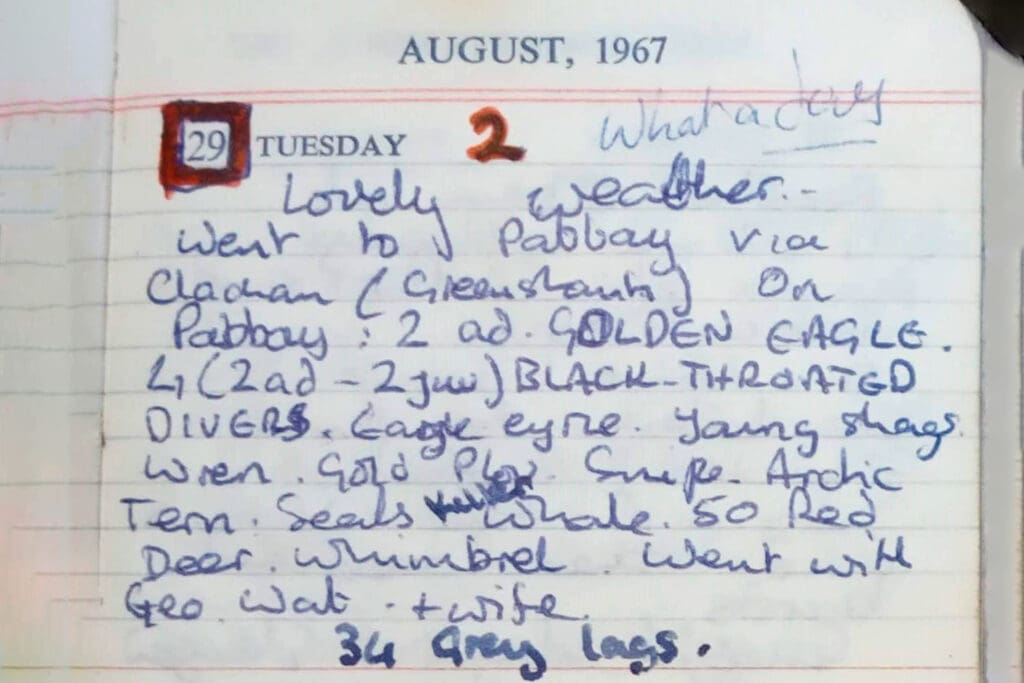 AUGUST, 1967
29 TUESDAY 2 What a day
Lovely weather.-
Went to Pabbay via
Clachan (Greenshanks) On
Pabbay : 2 ad. GOLDEN EAGLE.
4 (2ad - 2 juv) BLACK-THROATED
DIVERS. Eagle eyrie. Young shags.
Wren. Gold Plov. Snipe. Arctic
Tern. Seals Killer Whale. 50 Red
Deer. Whimbrel. Went with
Geo Wat. + wife.
34 Grey lags.